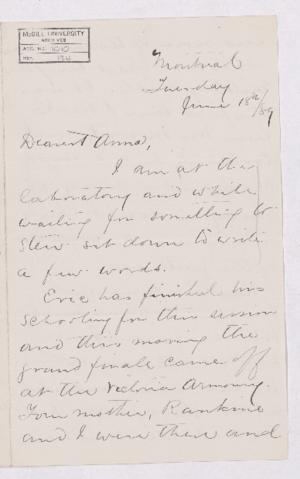 McGILL UNIVERSITY
ARCHIVES
ACC. NO.
REF.
Montreal
Tuesday
June 18th/89
Dearest Anna,
I am at the
laboratory and while
waiting for something to
stew sit down to write
a few words.
Eric has finished his
schooling for this session
and this morning the
grand finale came off
at the Victoria Armoury.
Your mother, Rankine
and I were there and